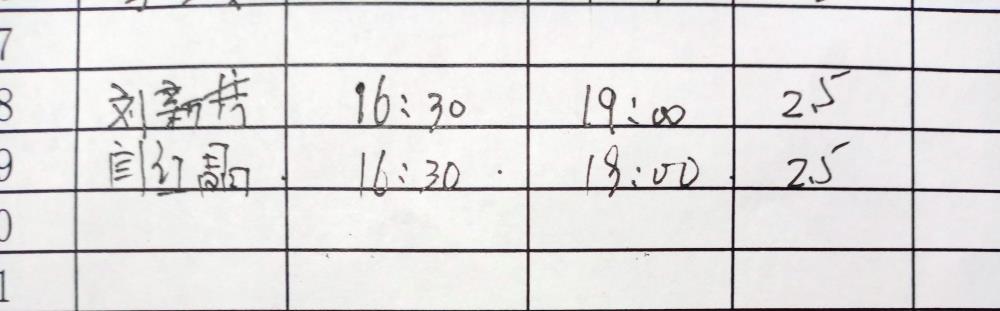 7
8 刘新芳 16:30 19:00 2.5
9 闫红周 16:30 19:00 2.5
0
1